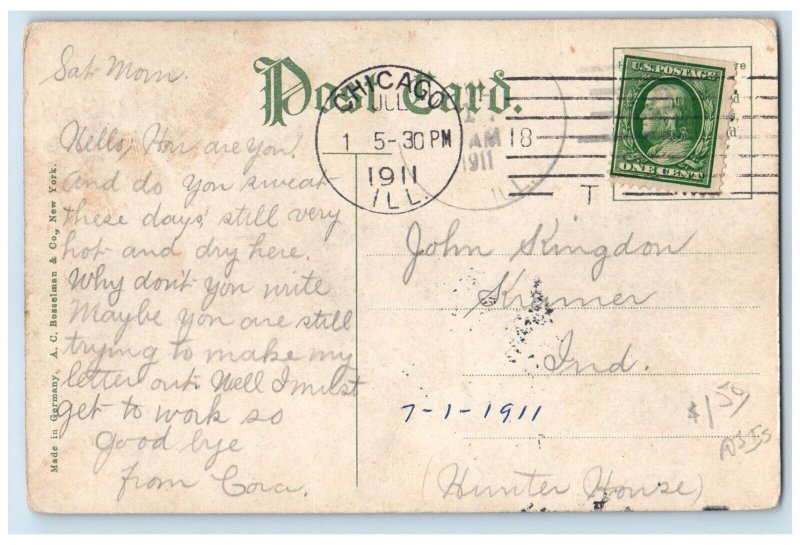 Post Card.
Sat Morn.
Hello, How are you?
And do you sweat
these days, still very
hot and dry here.
Why don't you write
Maybe you are still
trying to make my
letter out. Well I must
get to work so
Good bye
from Cora.
Made in Germany. A. C. Bosselman & Co., New York.
CHICAGO
ILL
1 5-30 PM
1911
ILL.
AM
1911
18
T
U.S. POSTAGE
ONE CENT
John Kingdon
Kramer
Ind.
7-1-1911
$1 50
(Hunter House)